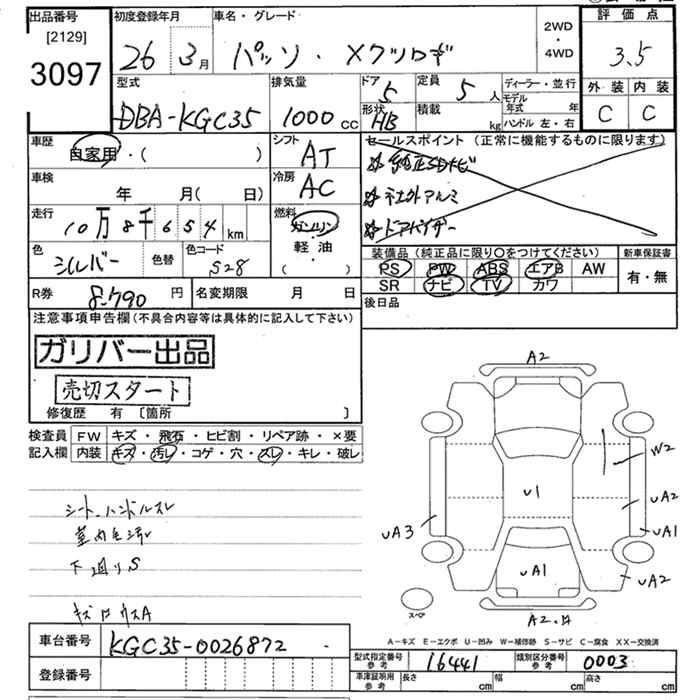 出品番号 初度登録年月 車名・グレード 評価点
[2129] 2WD
3097 26 3月 パッソ・メクリロギ ・4WD 3.5
型式 排気量 ドア 定員 ディーラー・並行 外装 内装
5 5人 モデル年式 年
DBA-KGC35 1000cc 形状 HB 積載 kg ハンドル 左・右 C C
車歴 シフト セールスポイント (正常に機能するものに限ります)
自家用・( ) AT 純正SDナビ
車検 冷房 社外アルミ
年 月(日) AC ドアバイザー
走行 燃料
10万8千654km ガソリン
色 色替 色コード 軽油 装備品 (純正品に限り○をつけてください) 新車保証書
シルバー S28 ・( ) PS PW ABS エアB AW 有・無
R券 8.790円 名変期限 月 日 SR ナビ TV カワ
注意事項申告欄(不具合内容等は具体的に記入して下さい) 後日品
ガリバー出品
売切スタート A2
修復歴 有 [箇所 ]
検査員 FW キズ・飛石・ヒビ割・リペア跡・×要
記入欄 内装 キズ・汚レ・コゲ・穴・スレ・キレ・破レ W2
U1 UA2
シート、ハンドルスレ UA3 UA1
下廻りS UA1 UA2
スペア A2.
車台番号 KGC35-0026872 A-キズ E-エクボ U-凹み W-補修跡 S-サビ C-腐食 XX-交換済
型式指定番号 参考 16441 類別区分番号 参考 0003
登録番号 車庫証明用 参考 長さ cm 幅 cm 高さ cm